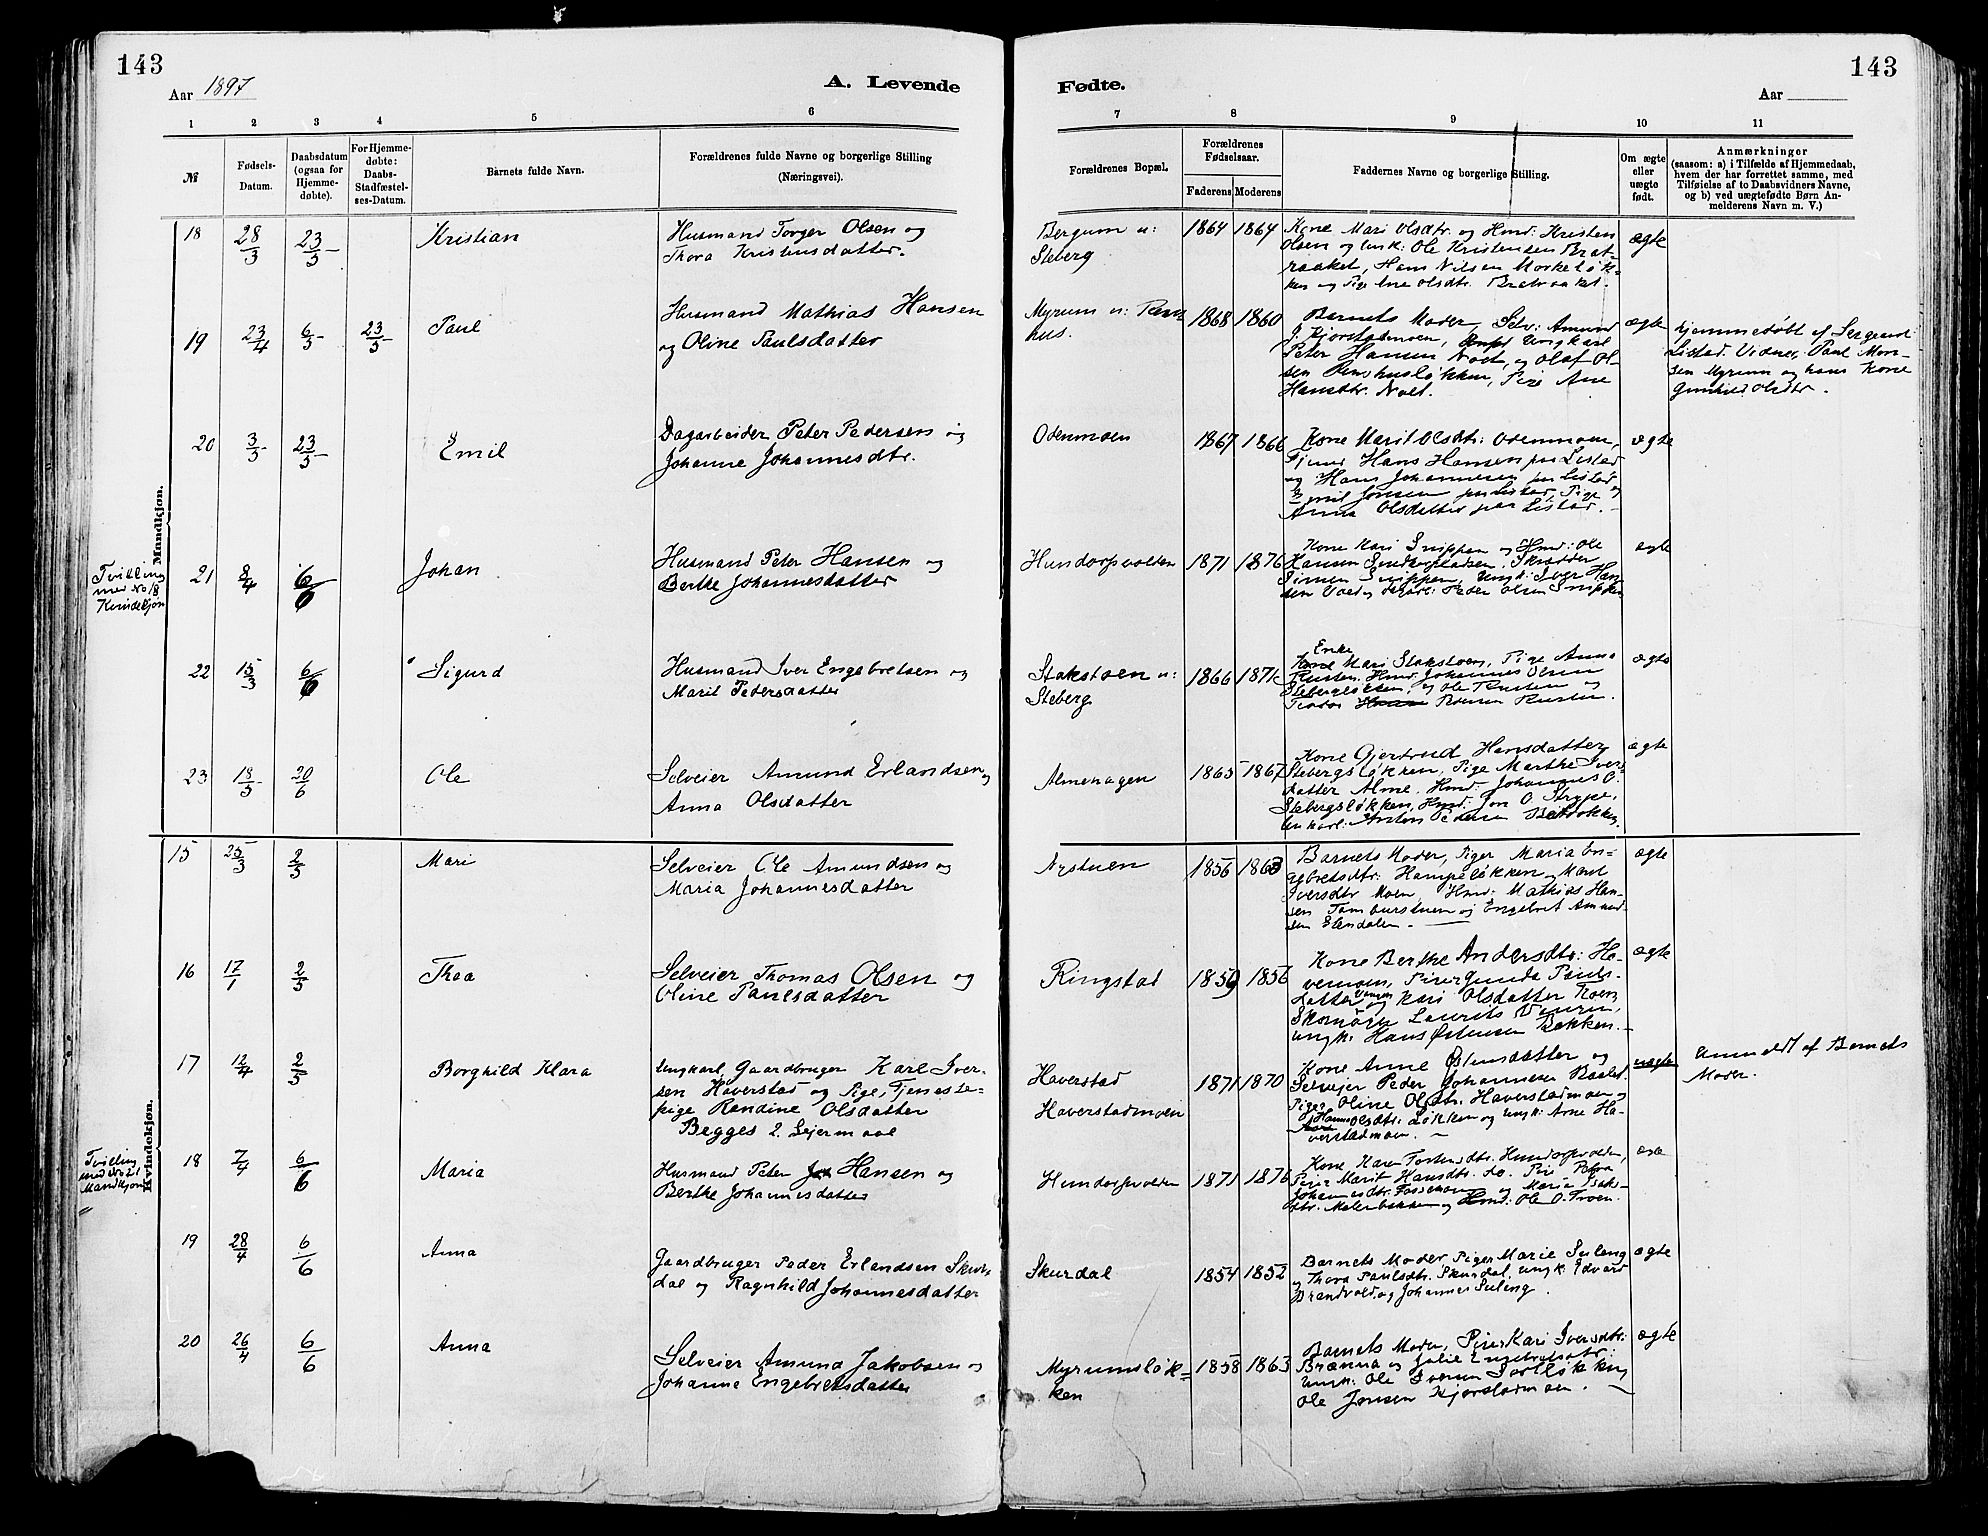 143
Aar 1897
A. Levende
1 2 3 4 5 6
№
Fødsels-
Datum.
Daabsdatum
(ogsaa for
Hjemme-
døbte).
For Hjemme-
døbte:
Daabs-
Stadfæstel-
ses-Datum.
Barnets fulde Navn.
Forældrenes fulde Navne og borgerlige Stilling
(Næringsvei).
Mandkjøn.
18 28/3 23/5 Kristian
Husmand Torger Olsen og
Thora Kristensdatter.
19 23/4 6/5 23/5 Paul
Husmand Mathias Hansen
og Oline Paulsdatter
20 3/5 23/5 Emil
Dagarbeider Peter Pedersen og
Johanne Johannesdtr.
Tvilling
med No 18
Kvindekjøn
21 8/4 6/6 Johan
Husmand Peter Hansen og
Berthe Johannesdatter
22 15/3 6/6 Sigurd
Husmand Iver Engebretsen og
Marit Pedersdatter
23 18/5 20/6 Ole
Selveier Amund Erlandsen og
Anna Olsdatter
Kvindekjøn.
15 25/3 2/5 Mari
Selveier Ole Amundsen og
Maria Johannesdatter
16 17/1 2/5 Thea
Selveier Thomas Olsen og
Oline Paulsdatter
17 12/4 2/5 Borghild Klara
Ungkarl, Gaardbruger Karl Iver-
sen Haverstad og Pige, Tjeneste-
pige Randine Olsdatter
Begges 2. Leiermaal
Tvilling
med No 21
Mandkjøn
18 7/4 6/6 Maria
Husmand Peter Hansen og
Berthe Johannesdatter
19 28/4 6/6 Anna
Gaardbruger Peder Erlandsen Skur-
dal og Ragnhild Johannesdatter
20 26/4 6/6 Anna
Selveier Amund Jakobsen og
Johanne Engebretsdatter
143
Fødte.
Aar
7 8 9 10 11
Forældrenes Bopæl.
Forældrenes
Fødselsaar.
Faderens Moderens
Faddernes Navne og borgerlige Stilling.
Om ægte
eller
uægte
født.
Anmærkninger
(saasom: a) i Tilfælde af Hjemmedaab,
hvem der har forrettet samme, med
Tilføielse af to Daabsvidners Navne,
og b) ved uægtefødte Børn An-
melderens Navn m. V.)
Bergum u:
Steberg
1864 1864
Kone Mari Olsdtr. og Hmd: Kristen
Olsen og Ungk: Ole Kristensen Brat-
raaket, Hans Nilsen Morkeløk-
ken og Pige Ane Olsdtr. Bratraaket.
ægte
Myrum u:
hus.
1868 1860
Barnets Moder, Selv: Amund
J. Kjorstadmoen, Ungkarl
Peter Hansen og Olaf Ol-
sen Pige Ane
Hansdtr.
ægte
hjemmedøbt af Sergeant
Listad. Vidner: Paul Mon-
sen Myrum og hans Kone
Gunhild Olsdtr.
Odenmoen
1867 1866
Kone Marit Olsdtr: Odenmoen,
Hans Hansen paa Listad
og Hans Johannesen paa Listad
Emil Jonsen paa Listad, Pige
Anna Olsdatter paa Listad.
ægte
Hundorpvolden
1871 1876
Kone Kari Snippen og Hmd: Ole
Hansen Skrædder
Simen Snippen, Ungk: Iver Han-
sen Peder Olsen Snippen
ægte
Stakstoen u:
Steberg
1866 1871
Enke
Kone Mari Stakstoen, Pige Anna
Rusten, Hmd: Johannes Olsen
Stebergløkken, og Ole Rusten og
Rusten.
ægte
Almehagen
1865 1867
Kone Gjertrud Hansdatter
Stebergsløkken, Pige Marthe Iver-
datter Alme, Hmd: Johannes O.
Stebergsløkken, Hmd: Jon O. Strype,
Unkarl: Anton Pedersen
ægte
Nystuen
1856 1863
Barnets Moder, Piger Maria En-
gebretsdtr: Hampeløkken og Mari
Iversdtr Moen, Hmd: Mathias Han-
sen Tamburstuen og Engebret Amund-
sen
ægte
Ringstad
1859 1856
Kone Berthe Andersdtr: Ha-
vermoen, Piger Gunda Pauls-
datter Vengen og Kari Olsdatter Moen,
Skomager Laurits Vengen,
Ungk: Hans Østensen Bakken.
ægte
Haverstad
Haverstadmoen
1871 1870
Kone Anne Østensdatter og
Selveier Peder Johannesen
Piger Oline Olsdtr. Haverstadmoen og
Hanna Olsdtr: Løkken og Ungk: Arne Ha-
verstadmoen.
uægte
Anmeldt af Barnets
Moder.
Hundorpvolden
1871 1876
Kone Karen Hundorpvolden,
Piger Marit Hansdtr. do. Petra
Johannesdtr. og Maria Isak-
dtr. Malerbakken og Hmd: Ole O. Troen.
Skurdal
1854 1852
Barnets Moder, Piger Marie Suleng
og Thora Paulsdtr. Skurdal, Ungk: Edvard
Brandvold og Johannes Suleng.
ægte
Myrumsløk-
ken
1858 1863
Barnets Moder, Piger Kari Iversdtr:
Brænna og Julie Engebretsdtr:
Ungk: Ole Iversen
Ole Jonsen Kjorstadmoen.
ægte